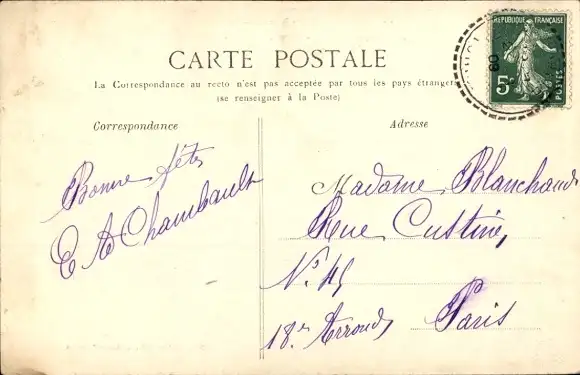 CARTE POSTALE
La Correspondance au recto n'est pas acceptée par tous les pays étrangers
(se renseigner à la Poste)
REPUBLIQUE FRANÇAISE
5c
POSTES
09
Correspondance
Adresse
Bonne fête
E Chambault
Madame Blanchaud
Rue Custine,
No 45
18e Arrond
Paris